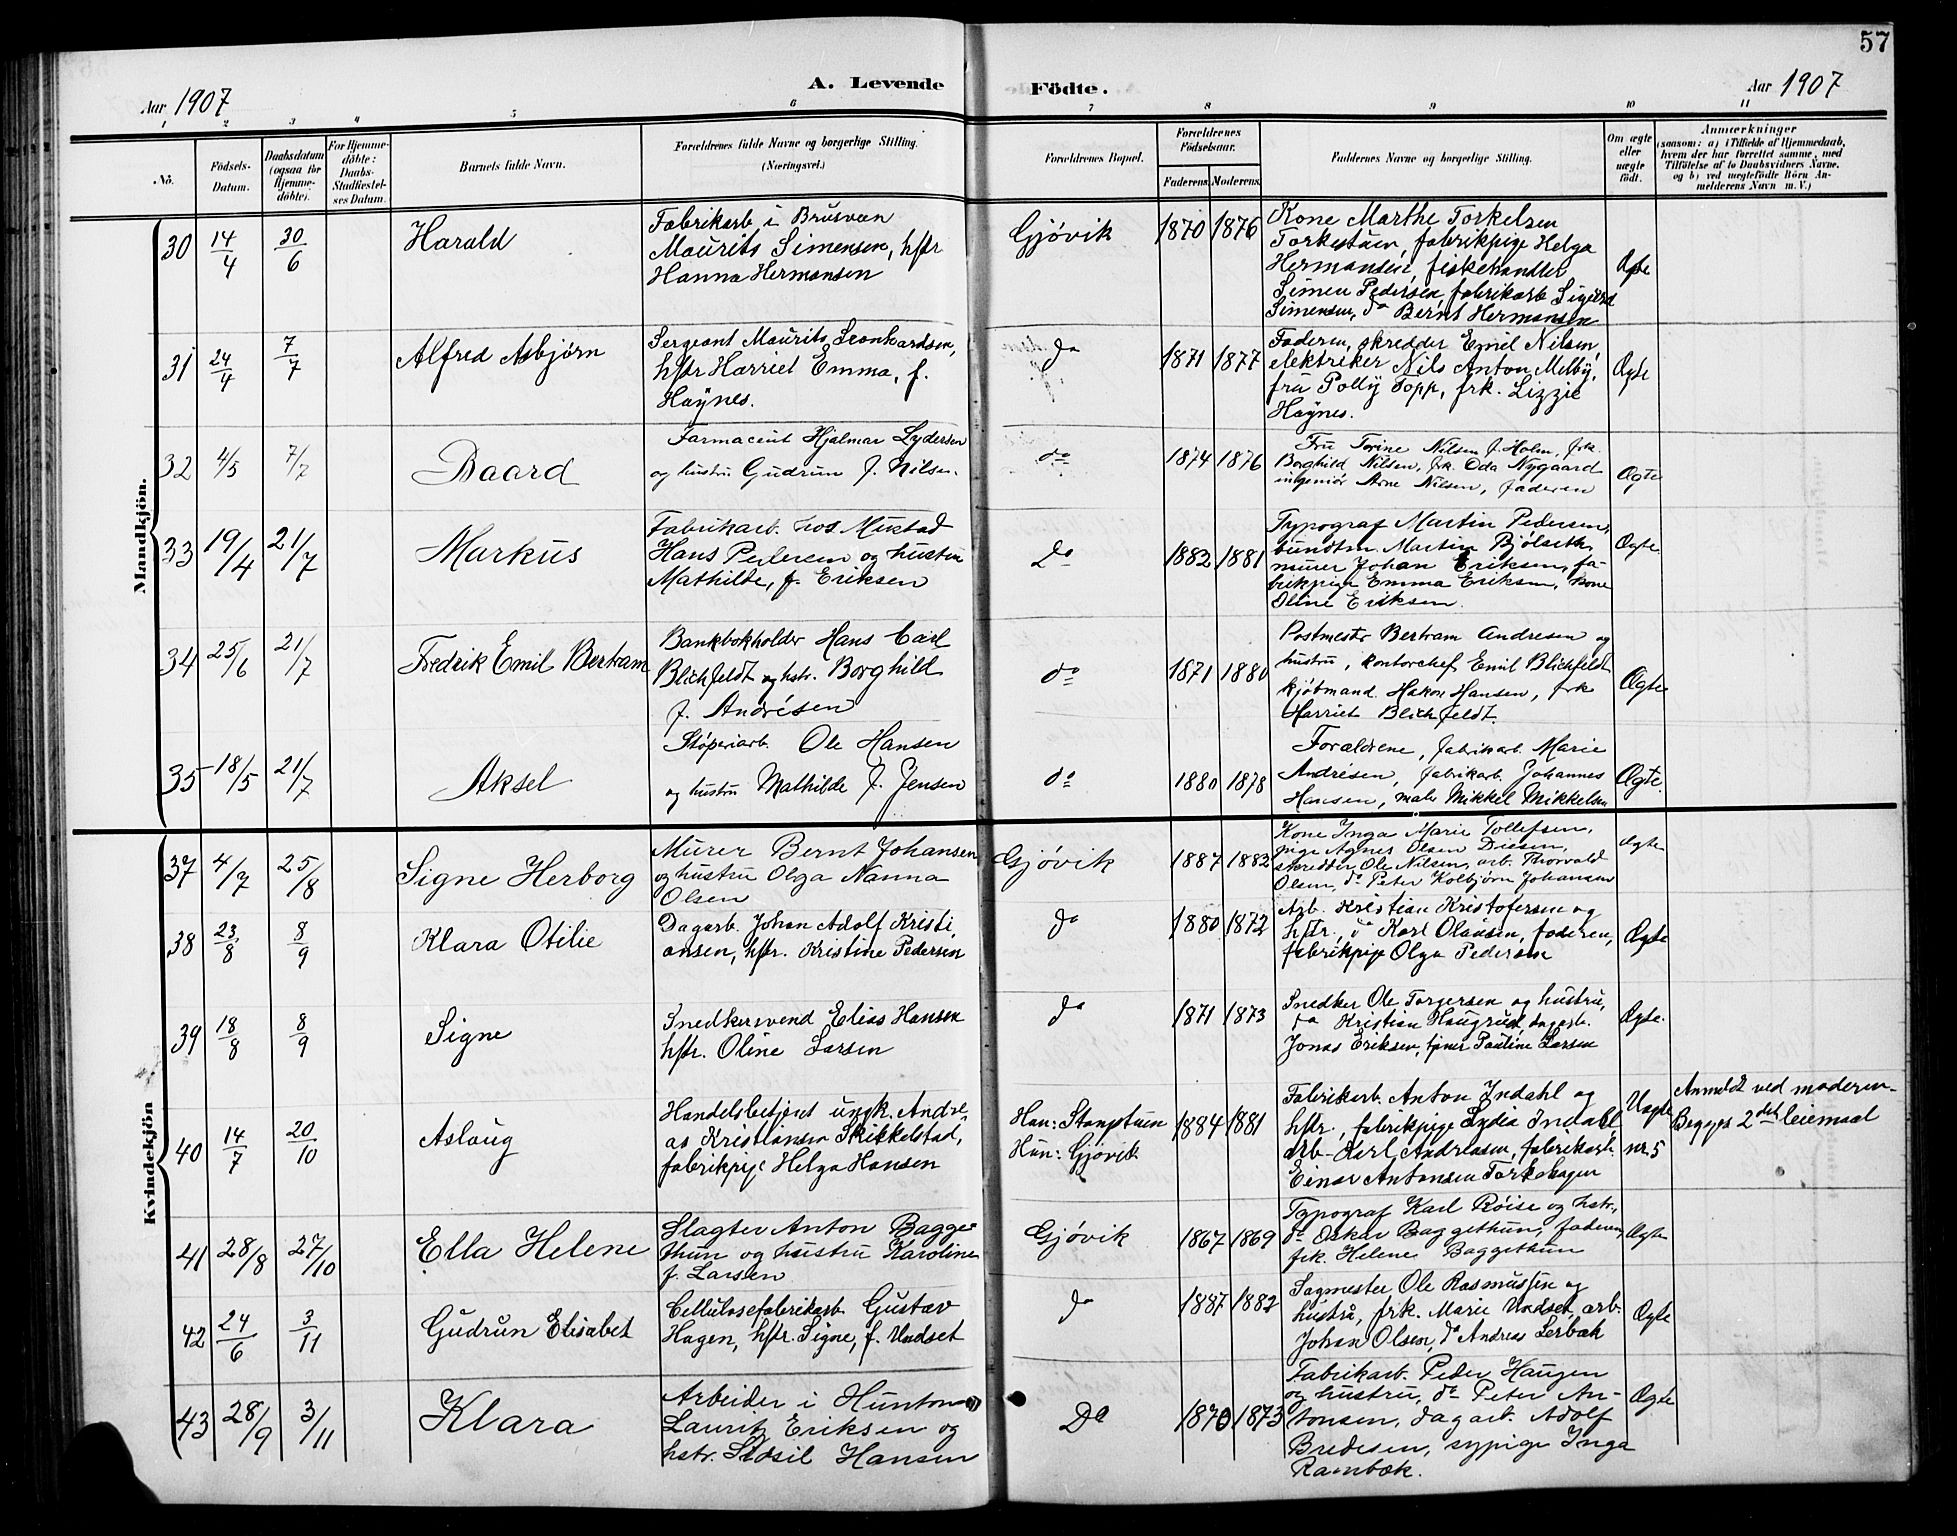 57
A. Levende Födte.
Aar 1907
Aar 1907
1 2 3 4 5 6 7 8 9 10 11
No.
Födsels-Datum.
Daabsdatum (ogsaa for Hjemmedöbte).
For Hjemmedöbte: Daabs-Stadfæstelses Datum.
Barnets fulde Navn.
Forældrenes fulde Navne og borgerlige Stilling. (Næringsvei.)
Forældrenes Bopæl.
Forældrenes Födselsaar.
Faderens. Moderens.
Faddernes Navne og borgerlige Stilling.
Om ægte eller uægte født.
Anmærkninger
(saasom: a) i Tilfælde af Hjemmedaab, hvem der har forrettet samme, med Tilföielse af to Daabsvidners Navne. og b) ved uegtefödte Börn Anmelderens Navn m. V.)
Mandkjön.
30 14/4 30/6 Harald
Fabrikarb. i Brusvæn
Maurits Simensen, hstr
Hanna Hermansen
Gjøvik 1870 1876
Kone Marthe Torkelsen
Torkestuen, fabrikpige Helga
Hermansen, fiskehandler
Simen Pedersen, fabrikarb Sigurd
Simensen, do Bernt Hermansen
Ægte
31 24/4 7/7 Alfred Asbjørn
Sergeant Maurits Leonhardsen,
hstr Harriet Emma, f.
Haÿnes.
do 1871 1877
Faderen, skredder Emil Nilsen,
elektriker Nils Anton Melby,
fru Polly Topp, frk. Lizzie
Haÿnes.
Ægte
32 4/5 7/7 Baard
Farmaceut Hjalmar Lydersen
og hustru Gudrun f. Nilsen.
do 1874 1876
Fru Torine Nilsen f. Holm, frk.
Borghild Nilsen, frk. Oda Nygaard
ingeniør Arne Nilsen, faderen
Ægte
33 19/4 21/7 Markus
Fabrikarb. hos Mustad
Hans Pedersen og hustru
Mathilde, f. Eriksen
Do 1882 1881
Typograf Martin Pedersen,
bundtm. Martin Bjølseth,
murer Johan Eriksen, fa-
brikpige Emma Eriksen, kone
Oline Eriksen.
Ægte
34 25/6 21/7 Fredrik Emil Bertram
Bankbokholder Hans Carl
Blichfeldt og hstr. Borghild
f. Andrésen
do 1871 1880
Postmester Bertram Andresen og
hustru, kontorchef Emil Blichfeldt
kjøbmand Hakon Hansen, frk
Harriet Blichfeldt.
Ægte
35 18/5 21/7 Aksel
Støperiarb. Ole Hansen
og hustru Mathilde f. Jensen
do 1880 1878
Forældrene, fabrikarb. Marie
Andrésen, fabrikarb. Johannes
Hansen, maler Mikkel Mikkelsen
Ægte.
Kvindekjön
37 4/7 25/8 Signe Herborg
Murer Bernt Johansen
og hustru Olga Nanna
Olsen
Gjøvik 1887 1882
Kone Inga Marie Tollefsen,
pige Agnes Olsen Diesen,
skredder Ole Nilsen, arb. Thorvald
Olsen, do Peter Kolbjørn Johansen
Ægte
38 23/8 8/9 Klara Otilie
Dagarb. Johan Adolf Kristi
ansen, hstr. Kristine Pedersen
do 1880 1872
Arb. Kristian Kristofersen og
hstr. do Karl Olausen, faderen,
fabrikpige Olga Pedersen
Ægte
39 18/8 8/9 Signe
Snedkersvend Elias Hansen
hstr. Oline Larsen
do 1871 1873
Snedker Ole Torgersen og hustru,
do Kristian Haugrud, dagarb.
Jonas Eriksen, tjener Pauline Larsen
Ægte.
40 14/7 20/10 Aslaug
Handelsbetjent ungk. Andre-
as Kristiansen Skikkelstad,
fabrikpige Helga Hansen
Han: Stamptuen
Hun: Gjøvik
1884 1881
Fabrikarb. Anton Indahl og
hstr., fabrikpige Lydia Indahl
arb. Karl Andreasen, fabrikarb.
Einar Antonsen Torkehagen
Uægte
nr. 5
Anmeldt ved moderen-
Begges 2det leiemaal
41 28/8 27/10 Ella Helene
Slagter Anton Bagge
thun og hustru Karoline
f. Larsen
Gjøvik 1867 1869
Typograf Karl Røise og hstr.,
do Oskar Baggethun, faderen,
frk. Helene Baggethun
Ægte
42 24/6 3/11 Gudrun Elisabet
Cellulosefabrikarb. Gustav
Hagen, hstr. Signe, f. Undset
do 1887 1882
Sagmester Ole Rasmussen og
hustru, frk. Marie Undset, arb.
Johan Olsen, do Andreas Lerbæk
Ægte
43 28/9 3/11 Klara
Arbeider i Hunton
Lauritz Eriksen og
hstr. Sidsil Hansen
Do 1870 1873
Fabrikarb. Peder Haugen
og hustru, do Peter An-
tonsen, dagarb. Adolf
Bredesen, sypige Inga
Rambæk.
Ægte